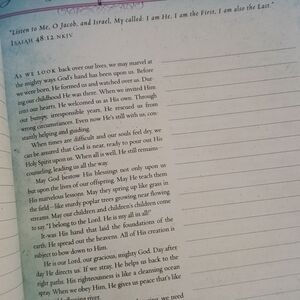 "Listen to Me, O Jacob, and Israel, My called: I am He, I am the First, I am also the Last."
ISAIAH 48:12 NKJV
AS WE LOOK back over our lives, we may marvel at
the mighty ways God's hand has been upon us. Before
we were born, He formed us and watched over us. Dur-
ing our childhood He was there. When we invited Him
into our hearts, He welcomed us as His own. Through
our bumpy, irresponsible years, He rescued us from
wrong circumstances. Even now He's still with us, con-
stantly helping and guiding.
When times are difficult and our souls feel dry, we
can be assured that God is near, ready to pour out His
Holy Spirit upon us. When all is well, He still remains—
counseling, leading us all the way.
May God bestow His blessings not only upon us
but upon the lives of our offspring. May He teach them
His marvelous lessons. May they spring up like grass in
the field—like sturdy poplar trees growing near flowing
streams. May our children and children's children come
to say, "I belong to the Lord. He is my all in all!"
It was His hand that laid the foundations of the
earth; He spread out the heavens. All of His creation is
subject to bow down to Him.
He is our Lord, our gracious, mighty God. Day after
day He directs us. If we stray, He helps us back to the
right paths. His righteousness is like a cleansing ocean
spray. When we obey Him, He gives us peace that's like
river.
we need